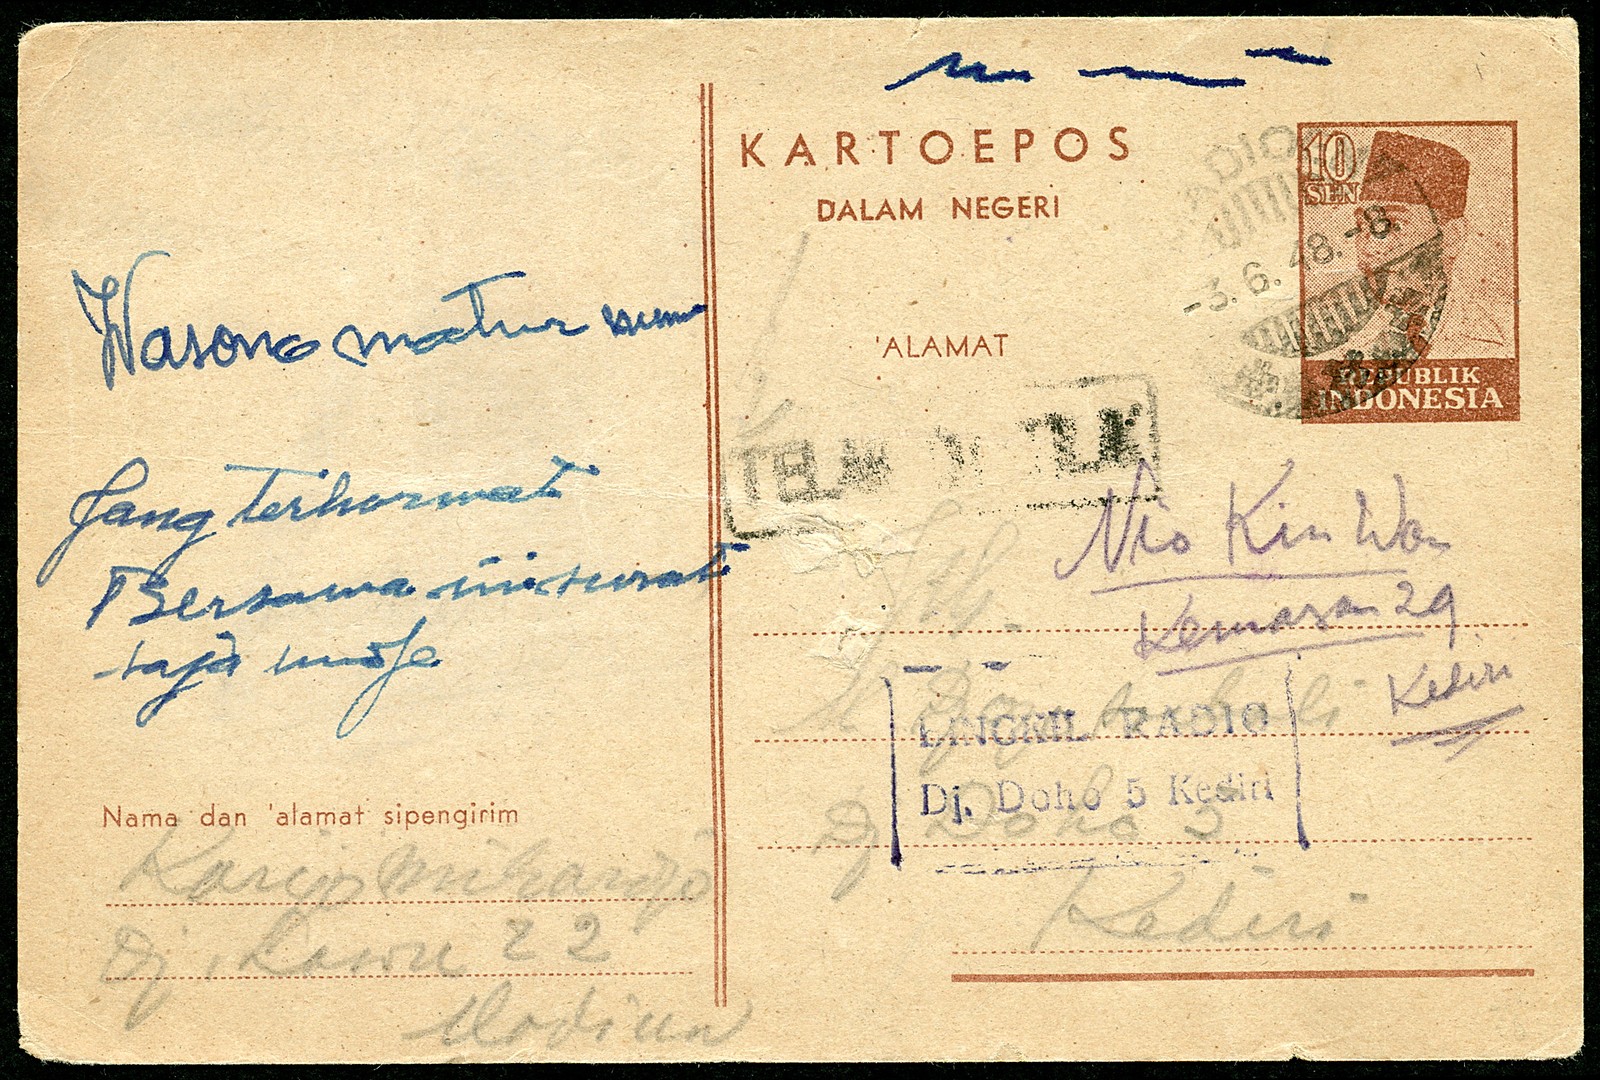 Wasono matur
Jang terhormat
Bersama ini surat
saja
Nama dan 'alamat sipengirim
Dj. Lawu 22
Madiun
KARTOEPOS
DALAM NEGERI
'ALAMAT
10
SEN
REPUBLIK
INDONESIA
-3. 6. 48. -8.
Nio Kin Wan
Kemasan 29
Kediri
RADIO
Dj. Doho 5 Kediri
Dj Doho 5
Kediri